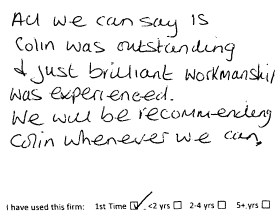 All we can say is
Colin was outstanding
& just brilliant workmanship
was experienced.
We will be recommending
Colin whenever we can.
I have used this firm: 1st Time ☑ <2 yrs ☐ 2-4 yrs ☐ 5+ yrs ☐